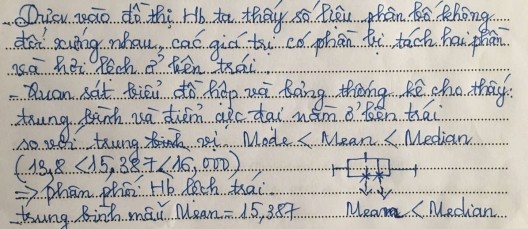 - Dựa vào đồ thị Hb ta thấy số liệu phân bố không
đối xứng nhau, các giá trị có phần bị tách hai phần
và hơi lệch ở bên trái
- Quan sát biểu đồ hộp và bảng thống kê cho thấy:
trung bình và điểm cực đại nằm ở bên trái
so với trung bình vị Mode < Mean < Median
(13,8 < 15,387 < 16,000)
⇒ phân phối Hb lệch trái.
trung bình mẫu Mean = 15,387 Mean < Median